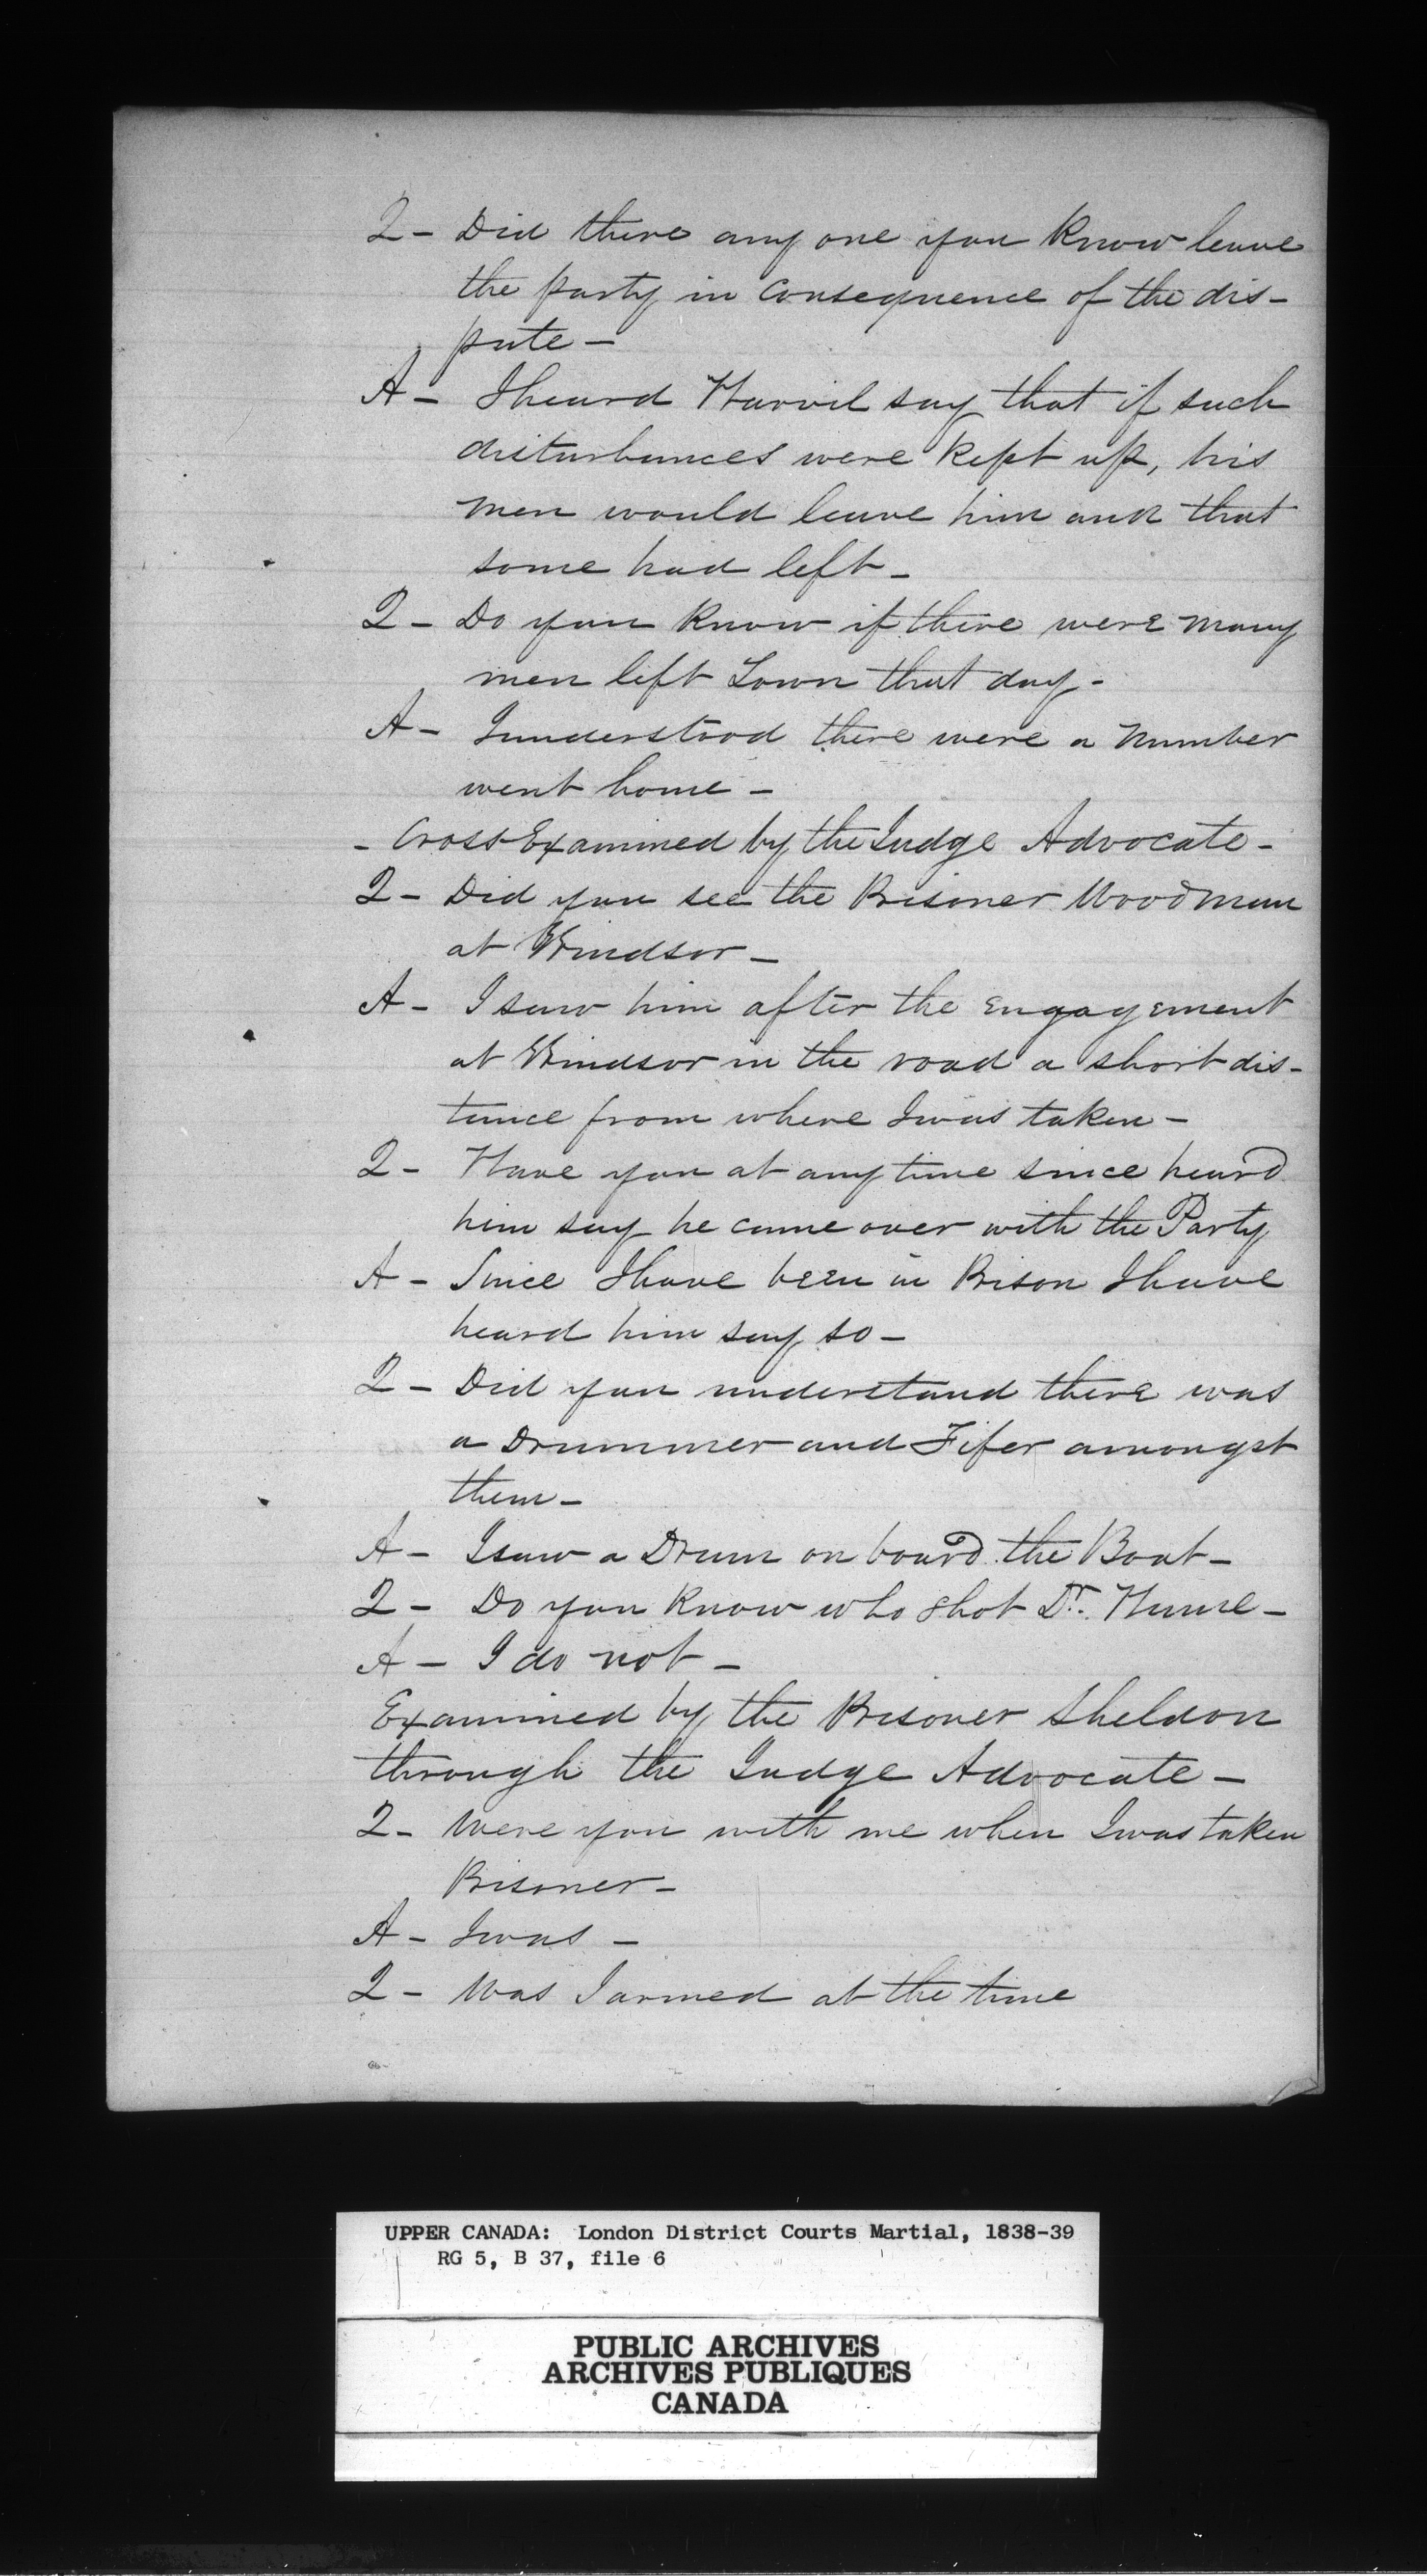 Q - Did there any one you know leave
the party in consequence of the dis-
pute -
A - I heard Harvil say that if such
disturbances were kept up, his
men would leave him and that
some had left -
Q - Do you know if there were many
men left Town that day -
A - I understood there were a number
went home -
- Cross Examined by the Judge Advocate -
Q - Did you see the Prisoner Woodman
at Windsor -
A - I saw him after the engagement
at Windsor in the road a short dis-
tance from where I was taken -
Q - Have you at any time since heard
him say he came over with the Party
A - Since I have been in Prison I have
heard him say so -
Q - Did you understand there was
a Drummer and Fifer amongst
them -
A - I saw a Drum on board the Boat -
Q - Do you know who shot Dr. Hume -
A - I do not -
Examined by the Prisoner Sheldon
through the Judge Advocate -
Q - Were you with me when I was taken
Prisoner -
A - I was -
Q - Was I armed at the time
UPPER CANADA: London District Courts Martial, 1838-39
RG 5, B 37, file 6
PUBLIC ARCHIVES
ARCHIVES PUBLIQUES
CANADA